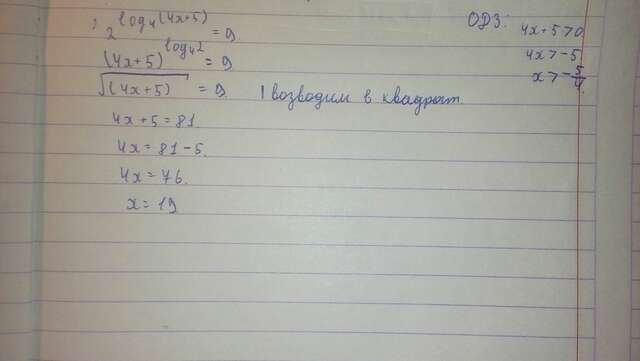 2^log₄(4x+5) = 9
(4x+5)^log₄2 = 9
√(4x+5) = 9 | возводим в квадрат.
4x+5=81
4x=81-5.
4x=76.
x=19
ОДЗ: 4x+5>0
4x>-5
x>-5/4